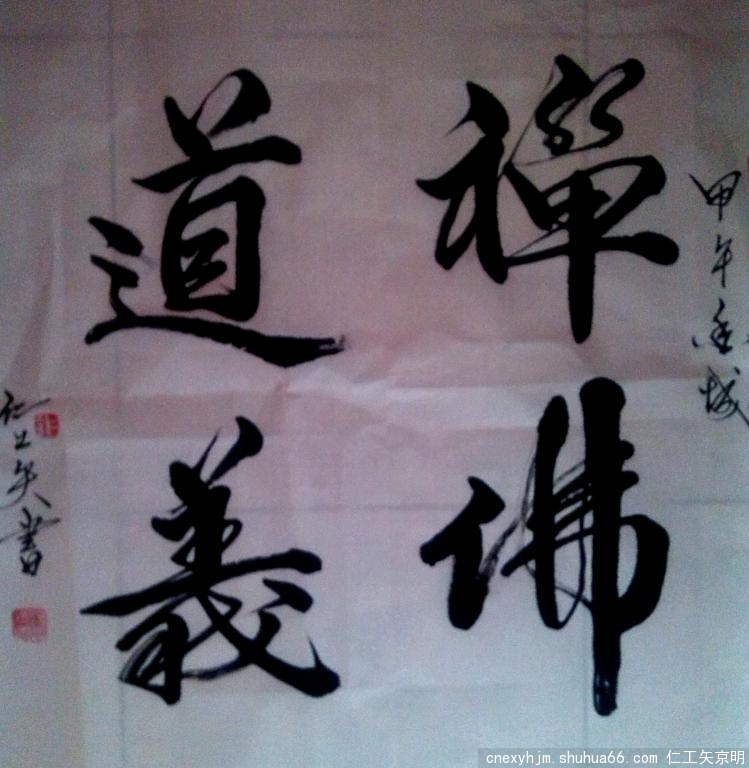 甲午
禪佛
道義
仁工矢書
cnexyhjm.shuhua66.com 仁工矢京明